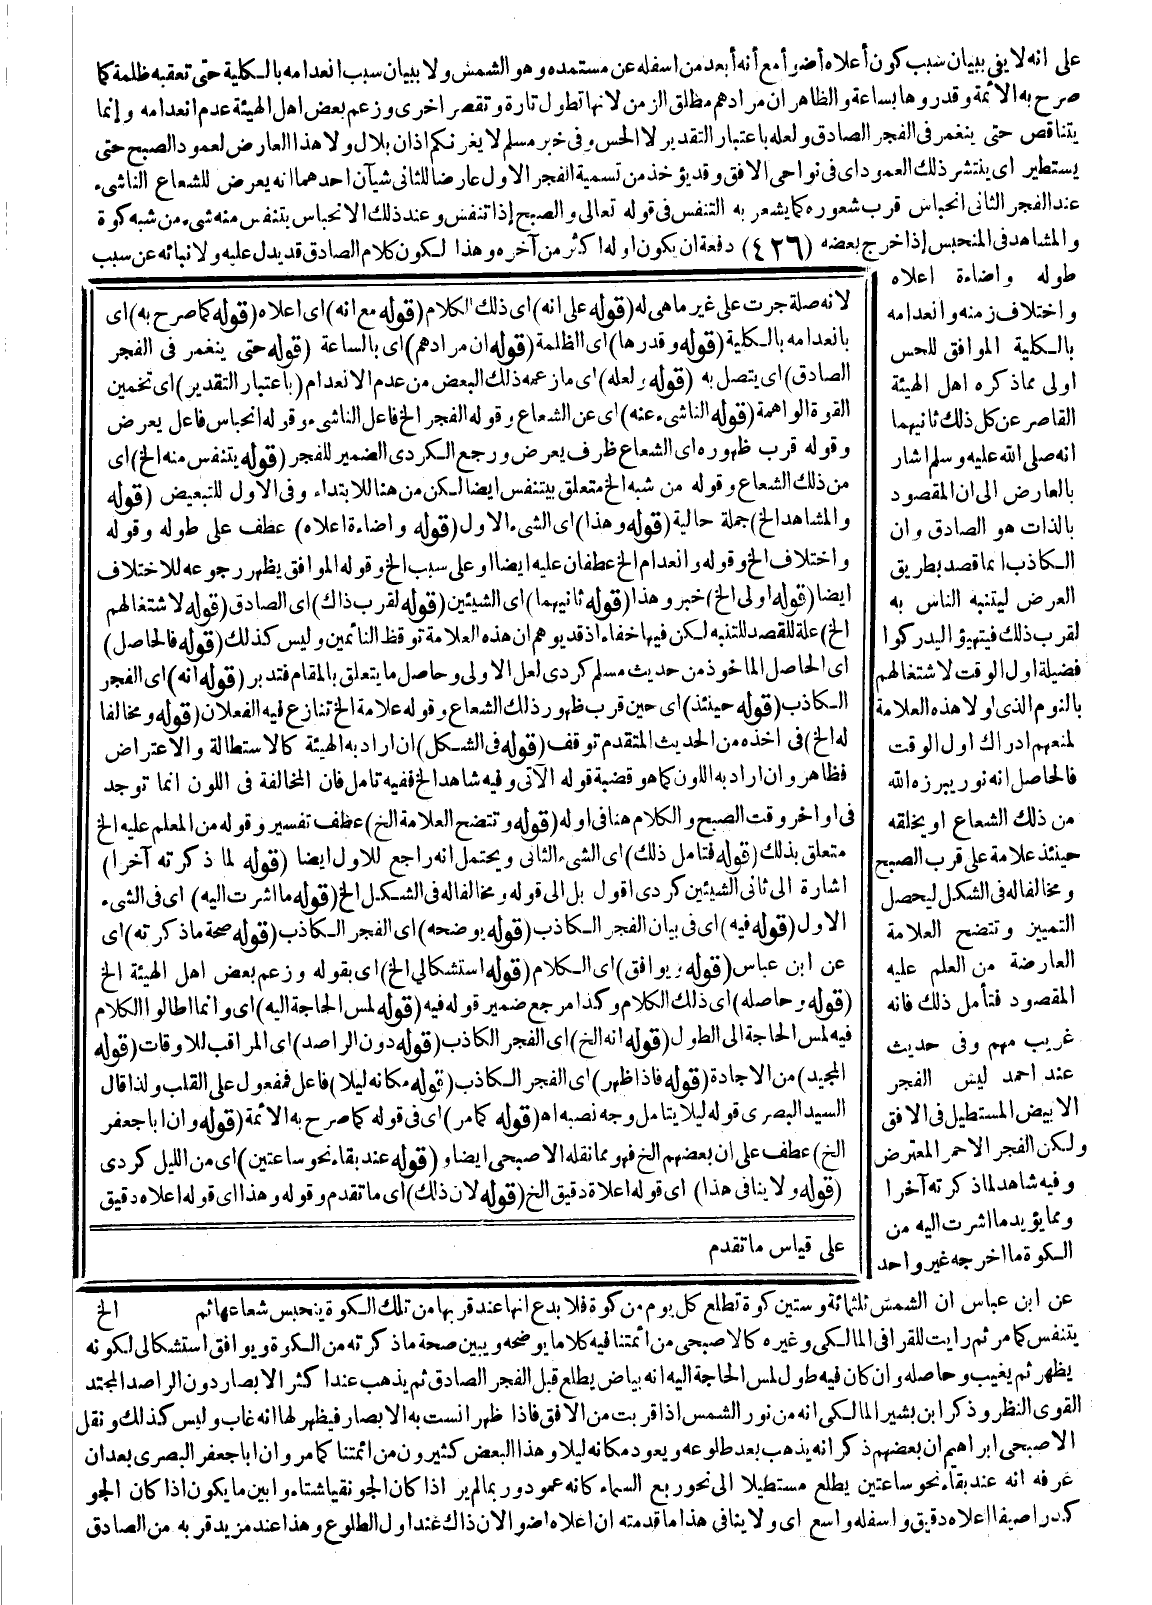 على انه لا يفى ببيان سبب كون أعلاه أضوأ مع أنه أبعد من اسفله عن مستمده وهو الشمس ولا ببيان سبب انعدامه بالكلية حتى تعقبه ظلمة كما
صرح به الائمة وقدروها بساعة والظاهر ان مرادهم مطلق الزمن لانها تطول تارة وتقصر اخرى وزعم بعض اهل الهيئة عدم انعدامه وإنما
يتناقص حتى ينغمر فى الفجر الصادق ولعله باعتبار التقدير لا الحس وفى خبر مسلم لا يغرنكم اذان بلال ولا هذا العارض لعمود الصبح حتى
يستطير اى ينتشر ذلك العمود اى فى نواحى الافق وقد يؤخذ من تسمية الفجر الاول عارضا للثانى شيآن احدهما انه يعرض للشعاع الناشىء
عند الفجر الثانى انحباس قرب شعوره كما يشعر به التنفس فى قوله تعالى والصبح إذا تنفس وعند ذلك الانحباس يتنفس منه شىء من شبه كوة
والمشاهد فى المنحبس إذا خرج بعضه (٤٢٦) دفعة ان يكون اوله اكثر من آخره وهذا لكون كلام الصادق قد يدل عليه ولانبائه عن سبب
طوله واضاءة اعلاه
واختلاف زمنه وانعدامه
بالكلية الموافق للحس
اولى مما ذكره اهل الهيئة
القاصر عن كل ذلك ثانيهما
انه صلى الله عليه وسلم اشار
بالعارض الى ان المقصود
بالذات هو الصادق وان
الكاذب انما قصد بطريق
العرض ليتنبه الناس به
لقرب ذلك فيتهيؤا ليدركوا
فضيلة اول الوقت لاشتغالهم
بالنوم الذى لولا هذه العلامة
لمنعهم ادراك اول الوقت
فالحاصل انه نور يبرزه الله
من ذلك الشعاع او يخلقه
حينئذ علامة على قرب الصبح
ومخالفا له فى الشكل ليحصل
التمييز وتتضح العلامة
العارضة من المعلم عليه
المقصود فتأمل ذلك فانه
غريب مهم وفى حديث
عند احمد ليس الفجر
الابيض المستطيل فى الافق
ولكن الفجر الاحمر المعترض
وفيه شاهد لما ذكرته آخرا
ومما يؤيد ما اشرت اليه من
الكوة ما اخرجه غير واحد
لانه صلة جرت على غير ما هى له (قوله على انه) اى ذلك الكلام (قوله مع انه) اى اعلاه (قوله كما صرح به) اى
بانعدامه بالكلية (قوله وقدرها) اى الظلمة (قوله ان مرادهم) اى بالساعة (قوله حتى ينغمر فى الفجر
الصادق) اى يتصل به (قوله ولعله) اى ما زعمه ذلك البعض من عدم الانعدام (باعتبار التقدير) اى تخمين
القوة الواهمة (قوله الناشىء عنه) اى عن الشعاع وقوله الفجر الخ فاعل الناشىء وقوله انحباس فاعل يعرض
وقوله قرب ظهوره اى الشعاع ظرف يعرض ورجع الكردى الضمير للفجر (قوله يتنفس منه الخ) اى
من ذلك الشعاع وقوله من شبه الخ متعلق بيتنفس ايضا لكن من هنا للابتداء وفى الاول للتبعيض (قوله
والمشاهد الخ) جملة حالية (قوله وهذا) اى الشىء الاول (قوله واضاءة اعلاه) عطف على طوله وقوله
واختلاف الخ وقوله وانعدام الخ عطفان عليه ايضا او على سبب الخ وقوله الموافق يظهر رجوعه للاختلاف
ايضا (قوله اولى الخ) خبر وهذا (قوله ثانيهما) اى الشيئين (قوله لقرب ذاك) اى الصادق (قوله لاشتغالهم
الخ) علة للقصد للتنبه لكن فيها خفاء اذ قد يوهم ان هذه العلامة توقظ النائمين وليس كذلك (قوله فالحاصل)
اى الحاصل المأخوذ من حديث مسلم كردى لعل الاولى وحاصل ما يتعلق بالمقام فتدبر (قوله انه) اى الفجر
الكاذب (قوله حينئذ) اى حين قرب ظهور ذلك الشعاع وقوله علامة الخ تنازع فيه الفعلان (قوله ومخالفا
له الخ) فى اخذه من الحديث المتقدم توقف (قوله فى الشكل) ان اراد به الهيئة كالاستطالة والاعتراض
فظاهر وان اراد به اللون كما هو قضية قوله الآتى وفيه شاهد الخ ففيه تامل فان المخالفة فى اللون انما توجد
فى اواخر وقت الصبح والكلام هنا فى اوله (قوله وتتضح العلامة الخ) عطف تفسير وقوله من المعلم عليه الخ
متعلق بذلك (قوله فتامل ذلك) اى الشىء الثانى ويحتمل انه راجع للاول ايضا (قوله لما ذكرته آخرا)
اشارة الى ثانى الشيئين كردى اقول بل الى قوله ومخالفا له فى الشكل الخ (قوله ما اشرت اليه) اى فى الشىء
الاول (قوله فيه) اى فى بيان الفجر الكاذب (قوله يوضحه) اى الفجر الكاذب (قوله صحة ما ذكرته) اى
عن ابن عباس (قوله ويوافق) اى الكلام (قوله استشكالى الخ) اى بقوله وزعم بعض اهل الهيئة الخ
(قوله وحاصله) اى ذلك الكلام وكذا مرجع ضمير قوله فيه (قوله لمس الحاجة اليه) اى وانما اطالوا الكلام
فيه لمس الحاجة الى الطول (قوله انه الخ) اى الفجر الكاذب (قوله دون الراصد) اى المراقب للاوقات (قوله
المجيد) من الاجادة (قوله فاذا ظهر) اى الفجر الكاذب (قوله مكانه ليلا) فاعل فمفعول على القلب ولذا قال
السيد البصرى قوله ليلا يتامل وجه نصبه اه (قوله كما مر) اى فى قوله كما صرح به الائمة (قوله وان ابا جعفر
الخ) عطف على ان بعضهم الخ فهو مما نقله الاصبحى ايضا و (قوله عند بقاء نحو ساعتين) اى من الليل كردى
(قوله ولا ينافى هذا) اى قوله اعلاه دقيق الخ (قوله لان ذلك) اى ما تقدم وقوله وهذا اى قوله اعلاه دقيق
على قياس ما تقدم
عن ابن عباس ان الشمس ثلثمائة وستين كوة تطلع كل يوم من كوة فلا بدع انها عند قربها من تلك الكوة ينحبس شعاعها ثم الخ
يتنفس كما مر ثم رايت للقرافى المالكى وغيره كالاصبحى من ائمتنا فيه كلاما يوضحه ويبين صحة ما ذكرته من الكوة ويوافق استشكالى لكونه
يظهر ثم يغيب وحاصله وان كان فيه طول لمس الحاجة اليه انه بياض يطلع قبل الفجر الصادق ثم يذهب عند اكثر الابصار دون الراصد المجتد
القوى النظر وذكر ابن بشير المالكى انه من نور الشمس اذا قربت من الافق فاذا ظهر انست به الابصار فيظهر لها انه غاب وليس كذلك ونقل
الاصبحى ابراهيم ان بعضهم ذكر انه يذهب بعد طلوعه ويعود مكانه ليلا وهذا البعض كثيرون من ائمتنا كما مر وان ابا جعفر البصرى بعد ان
عرفه انه عند بقاء نحو ساعتين يطلع مستطيلا الى نحو ربع السماء كانه عمود وربما لم ير اذا كان الجو نقيا شتاء وابين ما يكون اذا كان الجو
كدرا صيفا اعلاه دقيق واسفله واسع اى ولا ينافى هذا ما قدمته ان اعلاه اضوا لان ذاك عند اول الطلوع وهذا عند مزيد قربه من الصادق